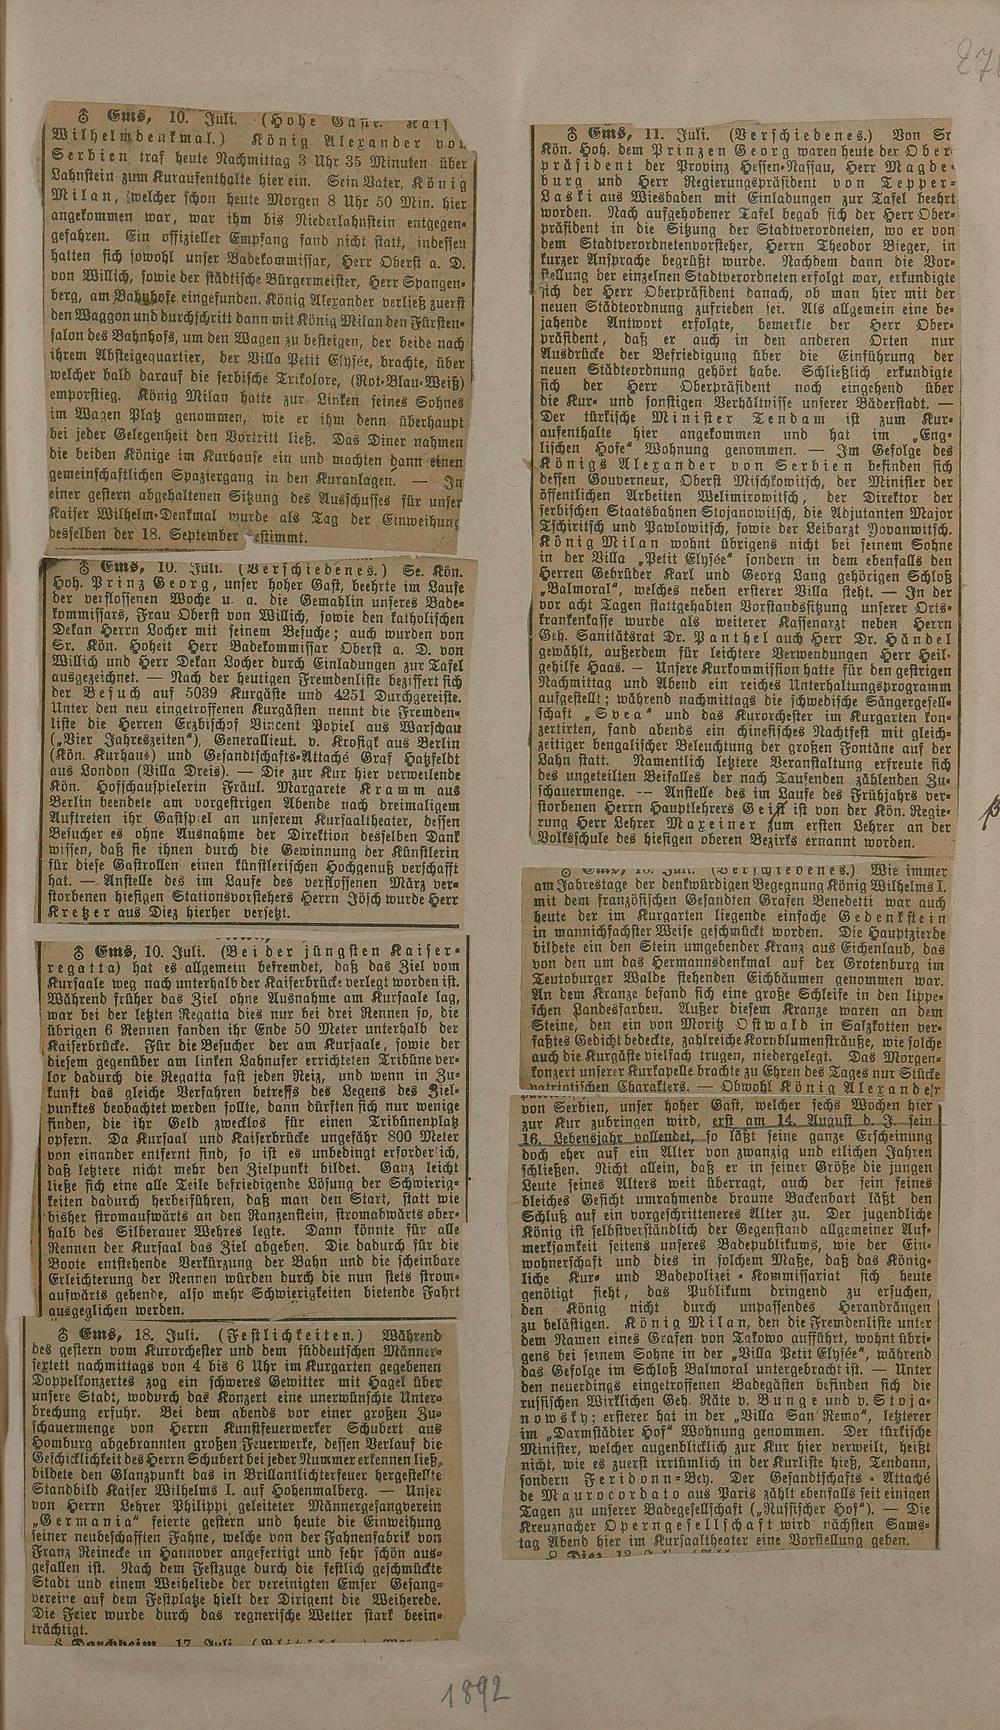 27
♁ Ems, 10. Juli. (Hohe Gäste.
Wilhelmdenkmal.) König Alexander von
Serbien traf heute Nachmittag 3 Uhr 35 Minuten über
Lahnstein zum Kuraufenthalte hier ein. Sein Vater, König
Milan, welcher schon heute Morgen 8 Uhr 50 Min. hier
angekommen war, war ihm bis Niederlahnstein entgegen-
gefahren. Ein offizieller Empfang fand nicht statt, indessen
hatten sich sowohl unser Badekommissar, Herr Oberst a. D.
von Willich, sowie der städtische Bürgermeister, Herr Spangen-
berg, am Bahnhofe eingefunden. König Alexander verließ zuerst
den Waggon und durchschritt dann mit König Milan den Fürsten-
salon des Bahnhofs, um den Wagen zu besteigen, der beide nach
ihrem Absteigequartier, der Villa Petit Elysée, brachte, über
welcher bald darauf die serbische Trikolore, (Rot-Blau-Weiß)
emporstieg. König Milan hatte zur Linken seines Sohnes
im Wagen Platz genommen, wie er ihm denn überhaupt
bei jeder Gelegenheit den Vortritt ließ. Das Diner nahmen
die beiden Könige im Kurhause ein und machten dann einen
gemeinschaftlichen Spaziergang in den Kuranlagen. — In
einer gestern abgehaltenen Sitzung des Ausschusses für unser
Kaiser Wilhelm-Denkmal wurde als Tag der Einweihung
desselben der 18. September estimmt.
♁ Ems, 10. Juli. (Verschiedenes.) Se. Kön.
Hoh. Prinz Georg, unser hoher Gast, beehrte im Laufe
der verflossenen Woche u. a. die Gemahlin unseres Bade-
kommissars, Frau Oberst von Willich, sowie den katholischen
Dekan Herrn Locher mit seinem Besuche; auch wurden von
Sr. Kön. Hoheit Herr Badekommissar Oberst a. D. von
Willich und Herr Dekan Locher durch Einladungen zur Tafel
ausgezeichnet. — Nach der heutigen Fremdenliste beziffert sich
der Besuch auf 5039 Kurgäste und 4251 Durchgereiste.
Unter den neu eingetroffenen Kurgästen nennt die Fremden-
liste die Herren Erzbischof Vincent Popiel aus Warschau
(„Vier Jahreszeiten"), Generallieut. v. Krosigk aus Berlin
(Kön. Kurhaus) und Gesandtschafts-Attaché Graf Hatzfeldt
aus London (Villa Dreis). — Die zur Kur hier verweilende
Kön. Hofschauspielerin Fräul. Margarete Kramm aus
Berlin beendete am vorgestrigen Abende nach dreimaligem
Auftreten ihr Gastspiel an unserem Kursaaltheater, dessen
Besucher es ohne Ausnahme der Direktion desselben Dank
wissen, daß sie ihnen durch die Gewinnung der Künstlerin
für diese Gastrollen einen künstlerischen Hochgenuß verschafft
hat. — Anstelle des im Laufe des verflossenen März ver-
storbenen hiesigen Stationsvorstehers Herrn Jösch wurde Herr
Kretzer aus Diez hierher versetzt.
♁ Ems, 10. Juli. (Bei der jüngsten Kaiser-
regatta) hat es allgemein befremdet, daß das Ziel vom
Kursaale weg nach unterhalb der Kaiserbrücke verlegt worden ist.
Während früher das Ziel ohne Ausnahme am Kursaale lag,
war bei der letzten Regatta dies nur bei drei Rennen so, die
übrigen 6 Rennen fanden ihr Ende 50 Meter unterhalb der
Kaiserbrücke. Für die Besucher der am Kursaale, sowie der
diesem gegenüber am linken Lahnufer errichteten Tribüne ver-
lor dadurch die Regatta fast jeden Reiz, und wenn in Zu-
kunft das gleiche Verfahren betreffs des Legens des Ziel-
punktes beobachtet werden sollte, dann dürften sich nur wenige
finden, die ihr Geld zwecklos für einen Tribünenplatz
opfern. Da Kursaal und Kaiserbrücke ungefähr 800 Meter
von einander entfernt sind, so ist es unbedingt erforderlich,
daß letztere nicht mehr den Zielpunkt bildet. Ganz leicht
ließe sich eine alle Teile befriedigende Lösung der Schwierig-
keiten dadurch herbeiführen, daß man den Start, statt wie
bisher stromaufwärts an den Ranzenstein, stromabwärts ober-
halb des Silberauer Wehres legte. Dann könnte für alle
Rennen der Kursaal das Ziel abgeben. Die dadurch für die
Boote entstehende Verkürzung der Bahn und die scheinbare
Erleichterung der Rennen würden durch die nun stets strom-
aufwärts gehende, also mehr Schwierigkeiten bietende Fahrt
ausgeglichen werden.
♁ Ems, 18. Juli. (Festlichkeiten.) Während
des gestern vom Kurorchester und dem süddeutschen Männer-
sextett nachmittags von 4 bis 6 Uhr im Kurgarten gegebenen
Doppelkonzertes zog ein schweres Gewitter mit Hagel über
unsere Stadt, wodurch das Konzert eine unerwünschte Unter-
brechung erfuhr. Bei dem abends vor einer großen Zu-
schauermenge von Herrn Kunstfeuerwerker Schubert aus
Homburg abgebrannten großen Feuerwerke, dessen Verlauf die
Geschicklichkeit des Herrn Schubert bei jeder Nummer erkennen ließ,
bildete den Glanzpunkt das in Brillantlichterfeuer hergestellte
Standbild Kaiser Wilhelms I. auf Hohenmalberg. — Unser
von Herrn Lehrer Philippi geleiteter Männergesangverein
„Germania" feierte gestern und heute die Einweihung
seiner neubeschafften Fahne, welche von der Fahnenfabrik von
Franz Reinecke in Hannover angefertigt und sehr schön aus-
gefallen ist. Nach dem Festzuge durch die festlich geschmückte
Stadt und einem Weiheliede der vereinigten Emser Gesang-
vereine auf dem Festplatze hielt der Dirigent die Weiherede.
Die Feier wurde durch das regnerische Wetter stark beein-
trächtigt.
17. Juli.
♁ Ems, 11. Juli. (Verschiedenes.) Von Sr
Kön. Hoh. dem Prinzen Georg waren heute der Ober-
präsident der Provinz Hessen-Nassau, Herr Magde-
burg und Herr Regierungspräsident von Tepper-
Laski aus Wiesbaden mit Einladungen zur Tafel beehrt
worden. Nach aufgehobener Tafel begab sich der Herr Ober-
präsident in die Sitzung der Stadtverordneten, wo er von
dem Stadtverordnetenvorsteher, Herrn Theodor Bieger, in
kurzer Ansprache begrüßt wurde. Nachdem dann die Vor-
stellung der einzelnen Stadtverordneten erfolgt war, erkundigte
sich der Herr Oberpräsident danach, ob man hier mit der
neuen Städteordnung zufrieden sei. Als allgemein eine be-
jahende Antwort erfolgte, bemerkte der Herr Ober-
präsident, daß er auch in den anderen Orten nur
Ausdrücke der Befriedigung über die Einführung der
neuen Städteordnung gehört habe. Schließlich erkundigte
sich der Herr Oberpräsident noch eingehend über
die Kur- und sonstigen Verhältnisse unserer Bäderstadt. —
Der türkische Minister Tendam ist zum Kur-
aufenthalte hier angekommen und hat im „Eng-
lischen Hofe" Wohnung genommen. — Im Gefolge des
Königs Alexander von Serbien befinden sich
dessen Gouverneur, Oberst Mischkowitsch, der Minister der
öffentlichen Arbeiten Welimirowitsch, der Direktor der
serbischen Staatsbahnen Stojanowitsch, die Adjutanten Major
Tschiritsch und Pawlowitsch, sowie der Leibarzt Jovanwitsch.
König Milan wohnt übrigens nicht bei seinem Sohne
in der Villa „Petit Elysée" sondern in dem ebenfalls den
Herren Gebrüder Karl und Georg Lang gehörigen Schloß
„Balmoral", welches neben ersterer Villa steht. — In der
vor acht Tagen stattgehabten Vorstandssitzung unserer Orts-
krankenkasse wurde als weiterer Kassenarzt neben Herrn
Geh. Sanitätsrat Dr. Panthel auch Herr Dr. Händel
gewählt, außerdem für leichtere Verwendungen Herr Heil-
gehilfe Haas. — Unsere Kurkommission hatte für den gestrigen
Nachmittag und Abend ein reiches Unterhaltungsprogramm
aufgestellt; während nachmittags die schwedische Sängergesell-
schaft „Svea" und das Kurorchester im Kurgarten kon-
zertirten, fand abends ein chinesisches Nachtfest mit gleich-
zeitiger bengalischer Beleuchtung der großen Fontäne auf der
Lahn statt. Namentlich letztere Veranstaltung erfreute sich
des ungeteilten Beifalles der nach Tausenden zählenden Zu-
schauermenge. — Anstelle des im Laufe des Frühjahrs ver-
storbenen Herrn Hauptlehrers Geiß ist von der Kön. Regie-
rung Herr Lehrer Maxeiner zum ersten Lehrer an der
Volksschule des hiesigen oberen Bezirks ernannt worden.
♁ Ems, 13. Juli. (Verschiedenes.) Wie immer
am Jahrestage der denkwürdigen Begegnung König Wilhelms I.
mit dem französischen Gesandten Grafen Benedetti war auch
heute der im Kurgarten liegende einfache Gedenkstein
in mannichfachster Weise geschmückt worden. Die Hauptzierde
bildete ein den Stein umgebender Kranz aus Eichenlaub, das
von den um das Hermannsdenkmal auf der Grotenburg im
Teutoburger Walde stehenden Eichbäumen genommen war.
An dem Kranze befand sich eine große Schleife in den lippe-
schen Landesfarben. Außer diesem Kranze waren an dem
Steine, den ein von Moritz Ostwald in Salzkotten ver-
faßtes Gedicht bedeckte, zahlreiche Kornblumensträuße, wie solche
auch die Kurgäste vielfach trugen, niedergelegt. Das Morgen-
konzert unserer Kurkapelle brachte zu Ehren des Tages nur Stücke
patriotischen Charakters. — Obwohl König Alexander
von Serbien, unser hoher Gast, welcher sechs Wochen hier
zur Kur zubringen wird, erst am 14. August d. J. sein
16. Lebensjahr vollendet, so läßt seine ganze Erscheinung
doch eher auf ein Alter von zwanzig und etlichen Jahren
schließen. Nicht allein, daß er in seiner Größe die jungen
Leute seines Alters weit überragt, auch der sein feines
bleiches Gesicht umrahmende braune Backenbart läßt den
Schluß auf ein vorgeschritteneres Alter zu. Der jugendliche
König ist selbstverständlich der Gegenstand allgemeiner Auf-
merksamkeit seitens unseres Badepublikums, wie der Ein-
wohnerschaft und dies in solchem Maße, daß das König-
liche Kur- und Badepolizei-Kommissariat sich heute
genötigt sieht, das Publikum dringend zu ersuchen,
den König nicht durch unpassendes Herandrängen
zu belästigen. König Milan, den die Fremdenliste unter
dem Namen eines Grafen von Takowo aufführt, wohnt übri-
gens bei seinem Sohne in der „Villa Petit Elysée", während
das Gefolge im Schloß Balmoral untergebracht ist. — Unter
den neuerdings eingetroffenen Badegästen befinden sich die
russischen Wirklichen Geh. Räte v. Bunge und v. Stoja-
nowsky; ersterer hat in der „Villa San Remo", letzterer
im „Darmstädter Hof" Wohnung genommen. Der türkische
Minister, welcher augenblicklich zur Kur hier verweilt, heißt
nicht, wie es zuerst irrtümlich in der Kurliste hieß, Tendann,
sondern Feridonn-Bey. Der Gesandtschafts-Attaché
de Maurocordato aus Paris zählt ebenfalls seit einigen
Tagen zu unserer Badegesellschaft („Russischer Hof"). — Die
Kreuznacher Operngesellschaft wird nächsten Sams-
tag Abend hier im Kursaaltheater eine Vorstellung geben.
1892